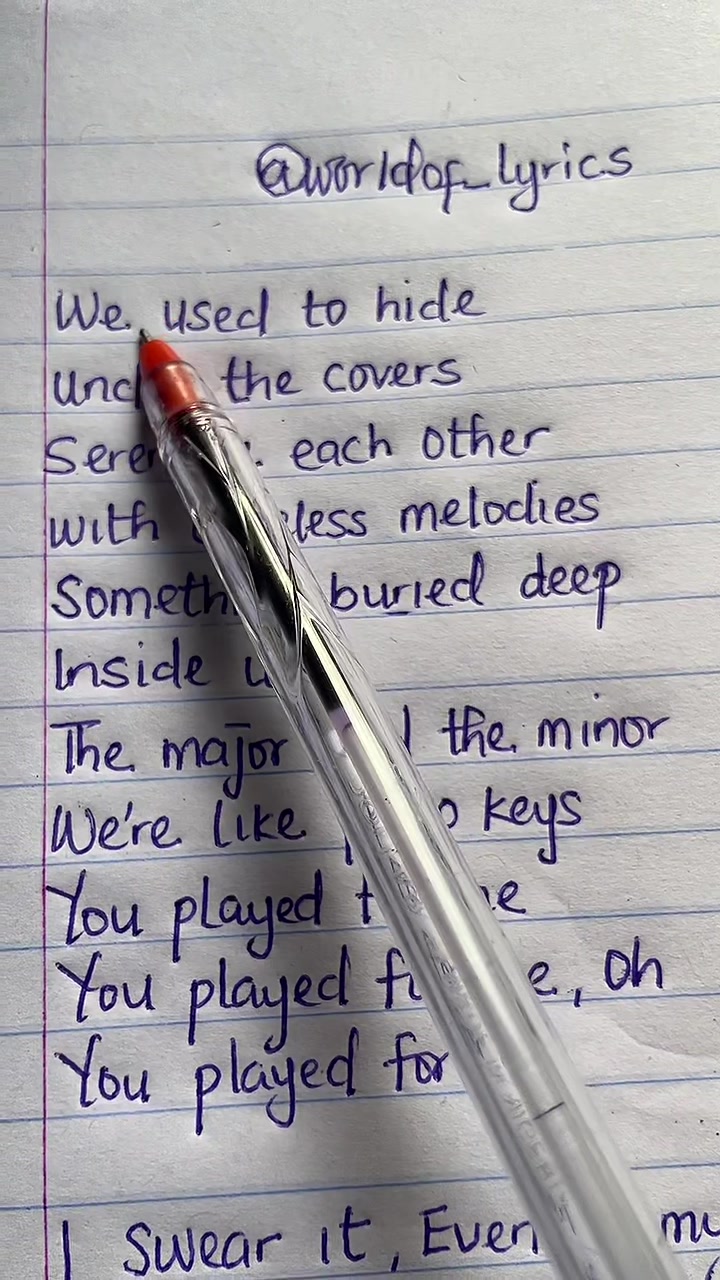 @worldof_lyrics
We used to hide
the covers
each other
with melodies
buried deep
Inside
The major the minor
We're like keys
You played
You played , Oh
You played for
I swear it, Even